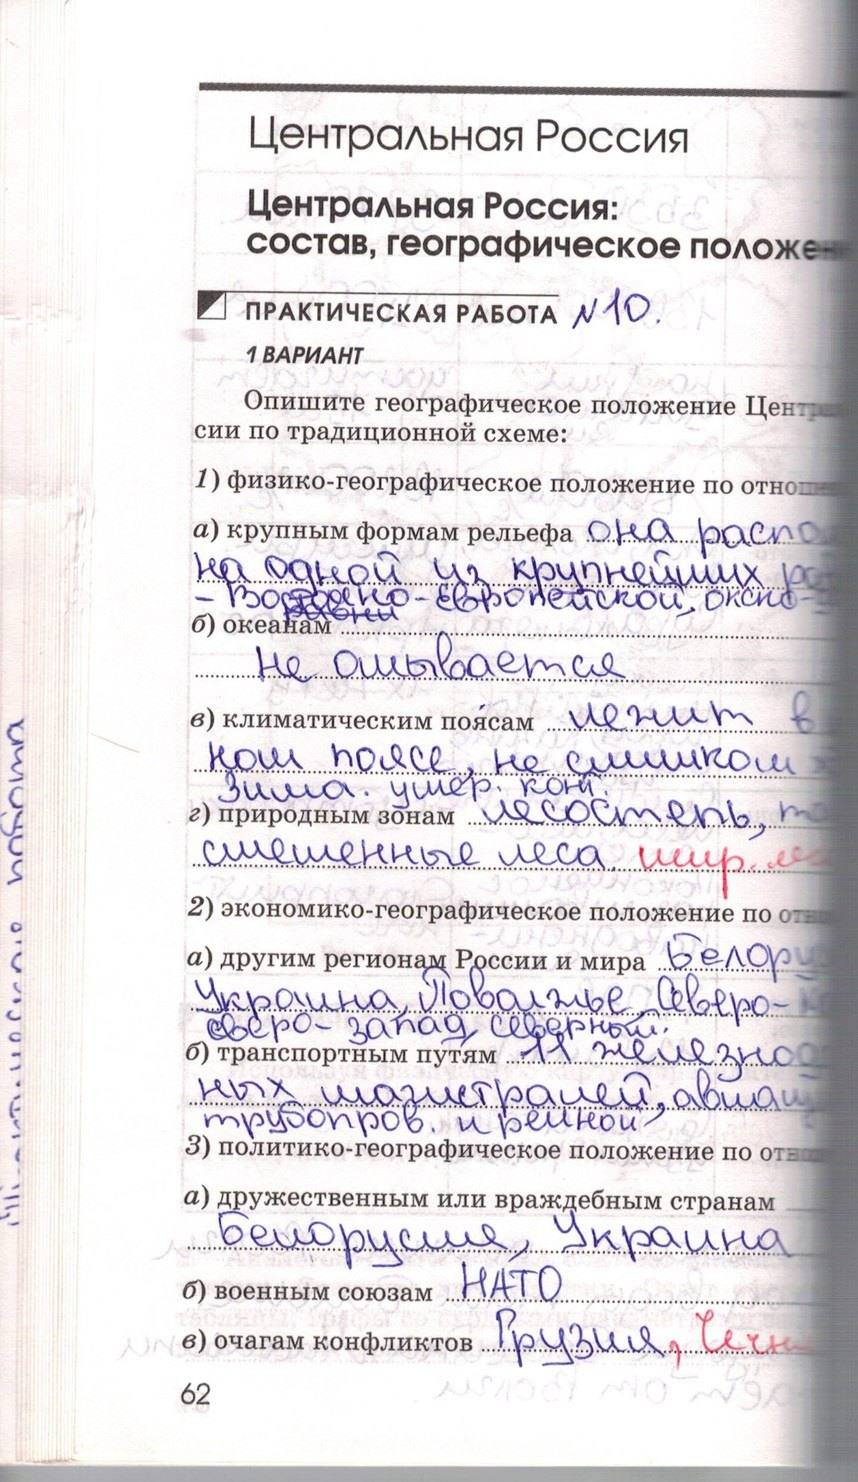 Центральная Россия
Центральная Россия:
состав, географическое
ПРАКТИЧЕСКАЯ РАБОТА №10.
1 ВАРИАНТ
Опишите географическое положение
сии по традиционной схеме:
1) физико-географическое положение по
а) крупным формам рельефа она
на одной из крупнейших
- Восточно-Европейской,
б) океанам
не омывается
в) климатическим поясам лежит в
ном поясе, не слишком
зима. умер. конт.
г) природным зонам лесостепь,
смешенные леса, шир.
2) экономико-географическое положение по
а) другим регионам России и мира
Украина, Поволжье, Северо-
северо-запад, северный.
б) транспортным путям 11
ных магистралей,
трубопров. и речной
3) политико-географическое положение по
а) дружественным или враждебным странам
Белоруссия, Украина
б) военным союзам НАТО
в) очагам конфликтов Грузия,
62